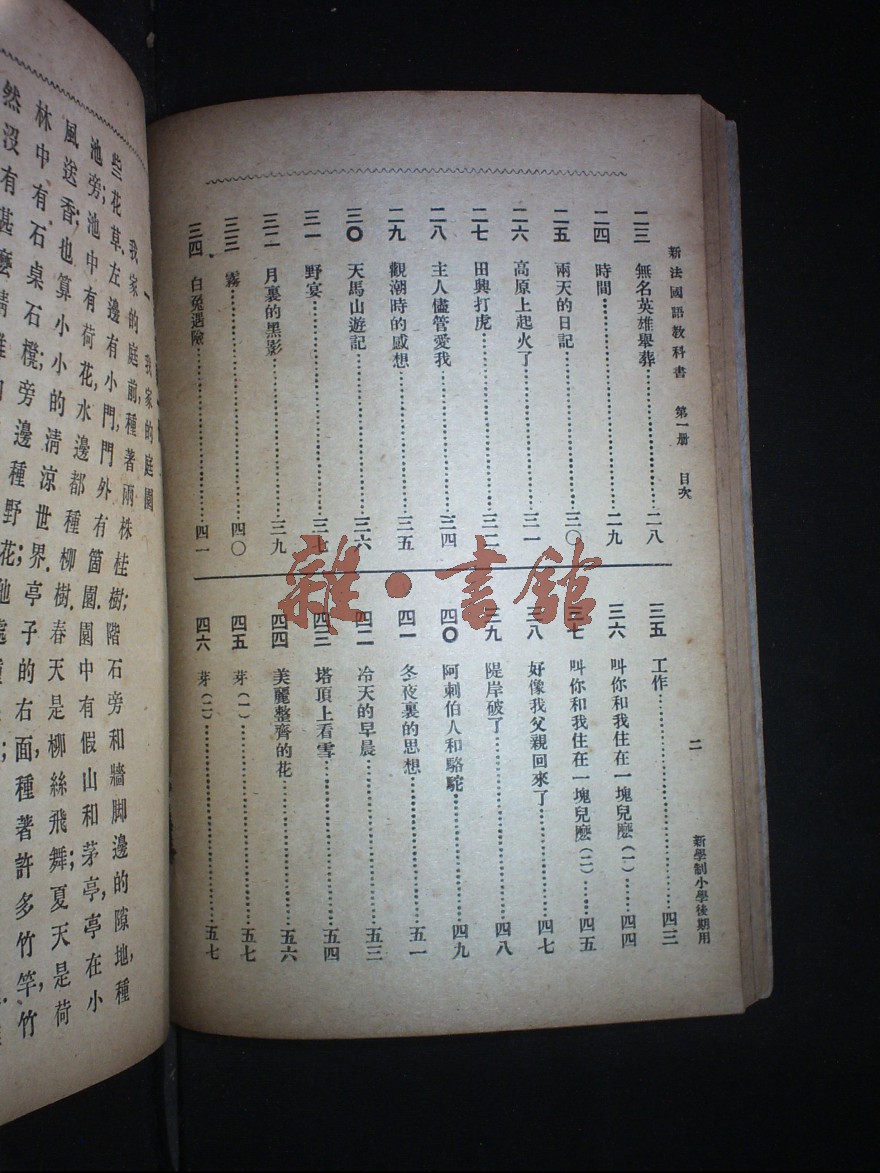 新法國語教科書 第一册 目次 二 新學制小學後期用
二三 無名英雄舉葬……二八
二四 時間……二九
二五 兩天的日記……三〇
二六 高原上起火了……三一
二七 田興打虎……三二
二八 主人儘管愛我……三四
二九 觀潮時的感想……三五
三〇 天馬山遊記……三六
三一 野宴……三七
三二 月裏的黑影……三九
三三 霧……四〇
三四 白兔遇險……四一
三五 工作……四三
三六 叫你和我住在一塊兒麽(一)……四四
三七 叫你和我住在一塊兒麽(二)……四五
三八 好像我父親回來了……四七
三九 隄岸破了……四八
四〇 阿剌伯人和駱駝……四九
四一 冬夜裏的思想……五一
四二 冷天的早晨……五三
四三 塔頂上看雪……五四
四四 美麗整齊的花……五六
四五 芽(一)……五七
四六 芽(二)……五七
雜·書館
一 我家的庭園
我家的庭前,種著兩株桂樹;階石旁和牆脚邊的隙地,種
些花草.左邊有小門,門外有箇園;園中有假山和茅亭,亭在小
池旁;池中有荷花,水邊都種柳樹.春天是柳絲飛舞;夏天是荷
風送香;也算小小的清涼世界.亭子的右面,種著許多竹竿,竹
林中有石桌石櫈;旁邊種野花;
然沒有甚麽